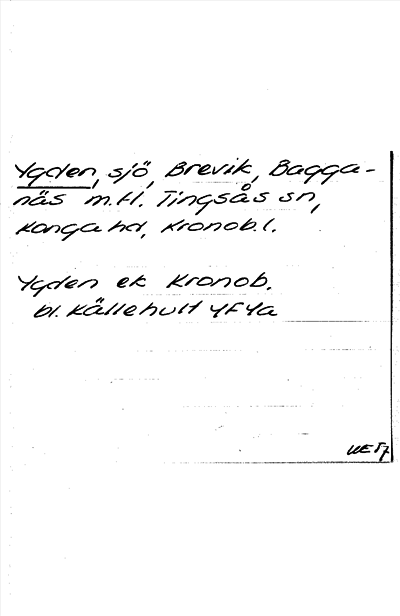 Ygden, sjö, Brevik, Bagga-
näs m.fl. Tingsås sn,
Konga hd, Kronob.l.
Ygden ek Kronob.
bl. Källehult 4F4a